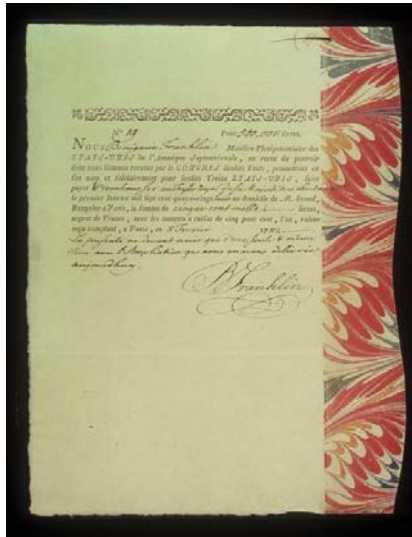 N° 19 Pour 500,000 livres.
NOUS Benjamin Franklin Ministre Plénipotentiaire des
ETATS-UNIS de l'Amérique Septentrionale, en vertu du pouvoir
dont nous sommes revetus par le CONGRÈS desdits Etats, promettons en
son nom et solidairement pour lesdits Treize ETATS-UNIS, faire
payer
le premier Janvier mil sept cent quatre-vingt huit au domicile de M. Grand,
Banquier à Paris, la somme de cinq cent mille livres,
argent de France, avec les interets à raison de cinq pour cent, l'an, valeur
reçu comptant, à Paris, ce
La présente ne devant servir que d'une seule & même
chose avec l'Ampliation que nous en avons délivrée
aujourd'hui
B Franklin